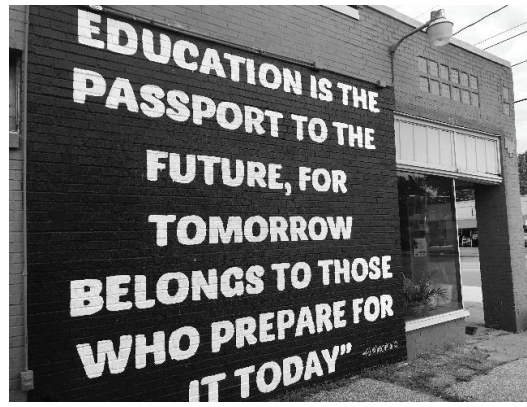 EDUCATION IS THE
PASSPORT TO THE
FUTURE, FOR
TOMORROW
BELONGS TO THOSE
WHO PREPARE FOR
IT TODAY”